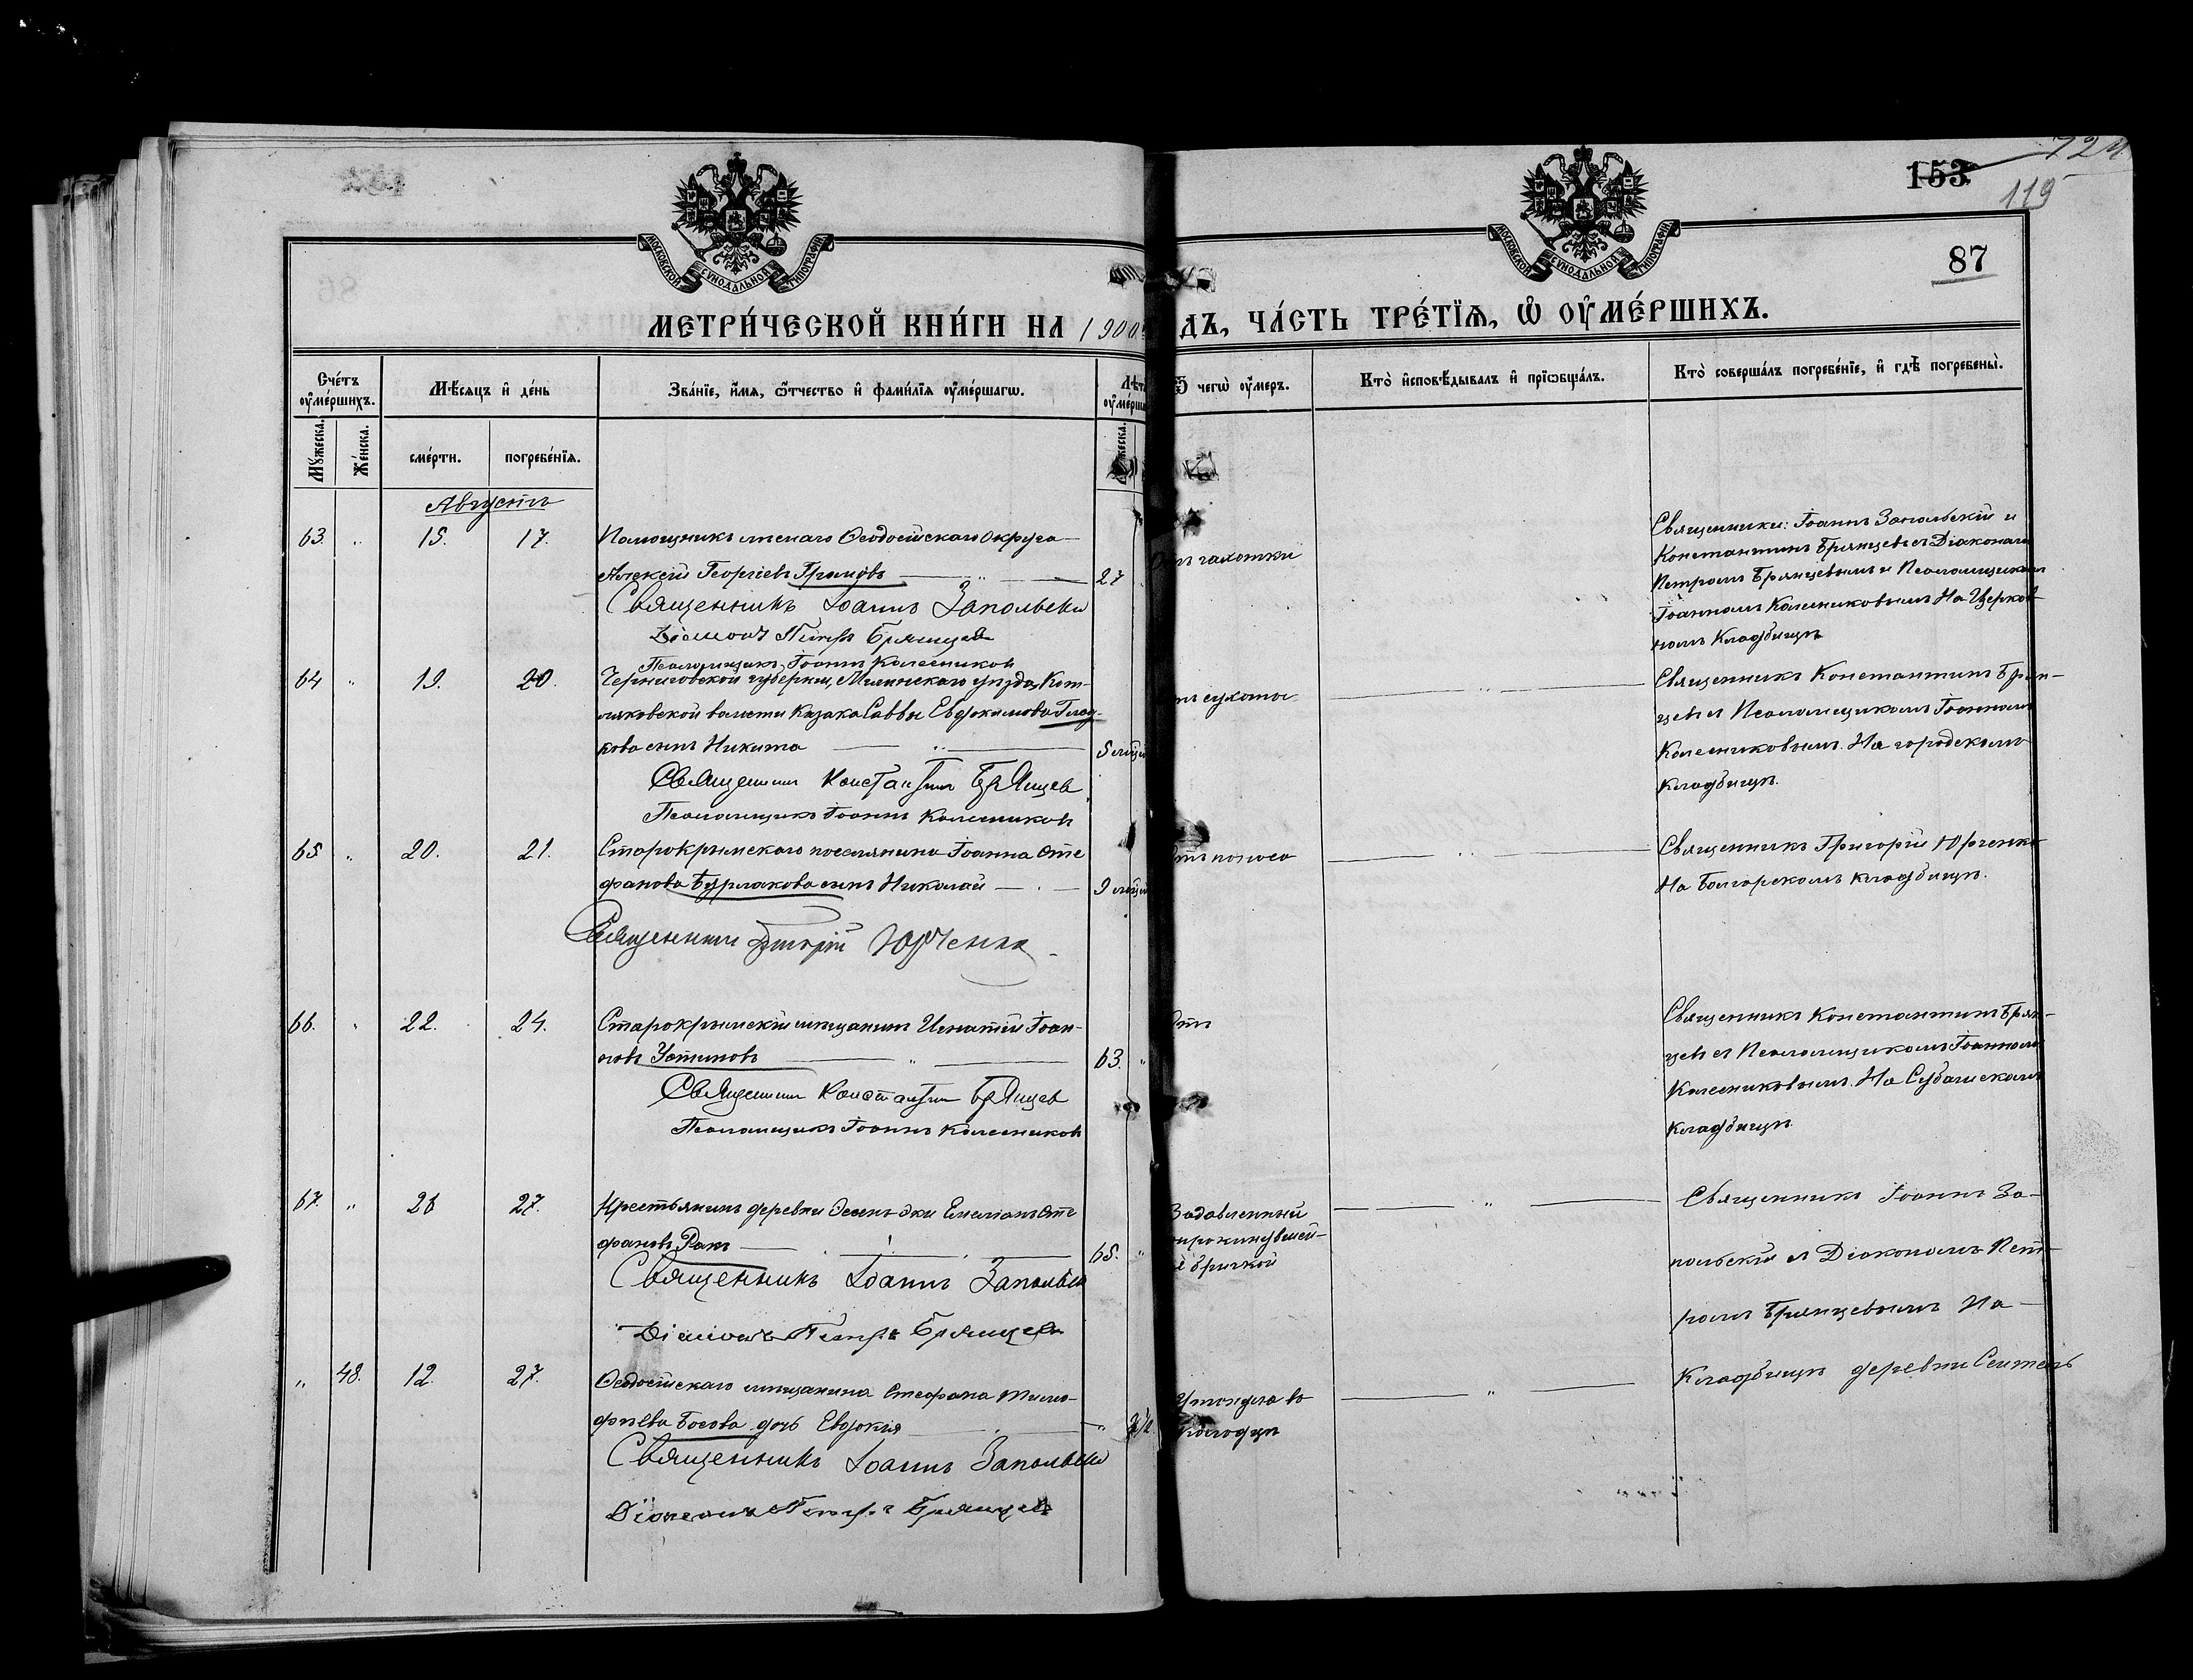 153
724
119
87
МОСКОВСКОЙ СѴНОДАЛЬНОЙ ТИПОГРАФІИ
МОСКОВСКОЙ СѴНОДАЛЬНОЙ ТИПОГРАФІИ
МЕТРИ́ЧЕСКОЙ КНИ́ГИ НА 1900 ДЪ, ЧА́СТЬ ТРЕ́ТЇѦ, Ѡ ОУМЕ́РШИХЪ.
Сче́тъ оуме́ршихъ.
Мѣ́сѧцъ и де́нь
Зва́нїе, и́мѧ, ѻ́тчество и фами́лїѧ оуме́ршагѡ.
Ѿ чегѡ̀ оу́меръ.
Кто̀ и҆сповѣ́дывалъ и҆ прїѡбща́лъ.
Кто̀ соверша́лъ погребе́нїе, и҆ гдѣ̀ погребены̀.
Мꙋ́жеска.
Же́нска.
сме́рти.
погребе́нїѧ.
Августъ
63 " 15. 17. Помощникъ лѣснаго Ѳеодосійскаго округа
Алексій Георгіевъ Громовъ 27
Священникъ Іоаннъ Запольскій
Діаконъ Петръ Брянцевъ
Псаломщикъ Іоаннъ Колесников
чахотки
Священники: Іоаннъ Запольскій и
Константинъ Брянцевъ съ Діакономъ
Петромъ Брянцевымъ и Псаломщикомъ
Іоанномъ Колесниковымъ На Церков-
номъ Кладбищѣ
64 " 19. 20. Черниговской губерніи, Мглинскаго уѣзда,
волости Казака Саввы Евдокимова Глад-
кова сынъ Никита 5 мѣся
Священникъ Константинъ Брянцев
Псаломщикъ Іоаннъ Колесников
сухоты
Священникъ Константинъ Брян-
цевъ съ Псаломщикомъ Іоанномъ
Колесниковымъ. На городскомъ
кладбищѣ.
65 " 20. 21. Старокрымскаго поселянина Іоанна Сте
фанова Бурлакова сынъ Николай 9 мѣся
Священникъ Григорій Юрченко
поноса
Священникъ Григорій Юрченко
На Болгарскомъ кладбищѣ.
66. " 22. 24. Старокрымскій мѣщанинъ Игнатій Іоан-
новъ Устиновъ 63. "
Священникъ Константинъ Брянцев
Псаломщикъ Іоаннъ Колесников
Священникъ Константинъ Брян-
цевъ съ Псаломщикомъ Іоанномъ
Колесниковымъ. На Субашскомъ
кладбищѣ.
67. " 26 27. Крестьянинъ деревни Эки Емеліанъ Сте
фановъ Ракъ 65. "
Священникъ Іоаннъ Запольскій
Діаконъ Петръ Брянцевъ
Задавленный
опрокинувшей-
ся бричкой
Священникъ Іоаннъ За-
польскій съ Діакономъ Пет-
ромъ Брянцевымъ На
Кладбищѣ деревни Сеитлеръ
" 48. 12. 27. Ѳеодосійскаго мѣщанина Стефана Тимо-
фѣева Босова дочь Евдокія
Священникъ Іоаннъ Запольскій
Діаконъ Петръ Брянцевъ
Утонула въ
колодцѣ